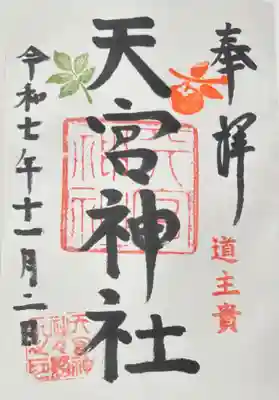 奉拝
道主貴
天宮神社
令和七年十一月二日